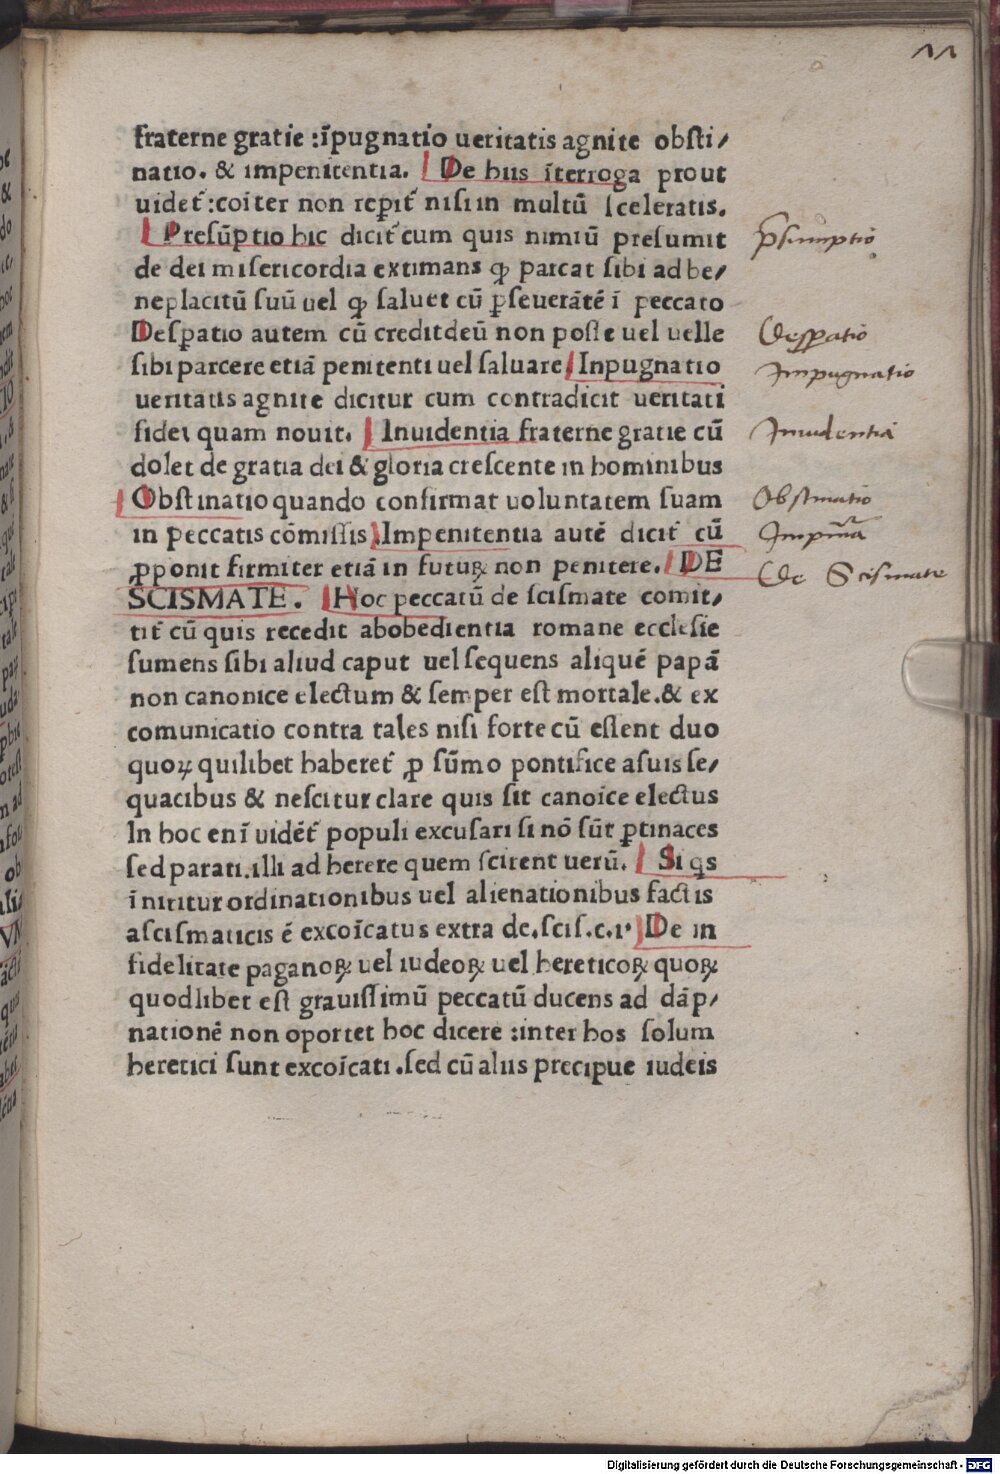 11
fraterne gratie :īpugnatio ueritatis agnite obsti/
natio. & impenitentia. De hiis īterroga prout
uidet᷑ :coiter non repit᷑ nisi in multū sceleratis.
Presūptio hic dicit᷑ cum quis nimiū presumit
p̄sumptio
de dei misericordia extimans ꝙ parcat sibi ad be/
neplacitū suū uel ꝙ saluet cū ꝑseuerātē ī peccato
Desꝑatio autem cū credit deū non posse uel uelle
Desꝑatio
sibi parcere etiā penitenti uel saluare Inpugnatio
Impugnatio
ueritatis agnite dicitur cum contradicit ueritati
fidei quam nouit. Inuidentia fraterne gratie cū
Inuidentia
dolet de gratia dei & gloria crescente in hominibus
Obstinatio quando confirmat uoluntatem suam
Obstinatio
in peccatis cōmissis Impenitentia autē dicit᷑ cū
ꝓponit firmiter etiā in futuꝝ non penitere. DE
De Scismate
SCISMATE. Hoc peccatū de scismate comit/
tit᷑ cū quis recedit ab obedientia romane ecclesie
sumens sibi aliud caput uel sequens aliquē papā
non canonice electum & semper est mortale .& ex
comunicatio contra tales nisi forte cū essent duo
quoꝝ quilibet haberet᷑ ꝓ sūmo pontifice a suis se/
quacibus & nescitur clare quis sit canoīce electus
In hoc enī uidēt᷑ populi excusari si nō sūt ꝑtinaces
sed parati .illi adherere quem scirent uerū. Si qs
īnititur ordinationibus uel alienationibus factis
a scismaticis ē excoīcatus extra de. scis. c. 1· De in
fidelitate paganoꝝ uel iudeoꝝ uel hereticoꝝ quoꝝ
quodlibet est grauissimū peccatū ducens ad dāp/
nationē non oportet hoc dicere :inter hos solum
heretici sunt excoīcati .sed cū aliis precipue iudeis
Digitalisierung gefördert durch die Deutsche Forschungsgemeinschaft - DFG